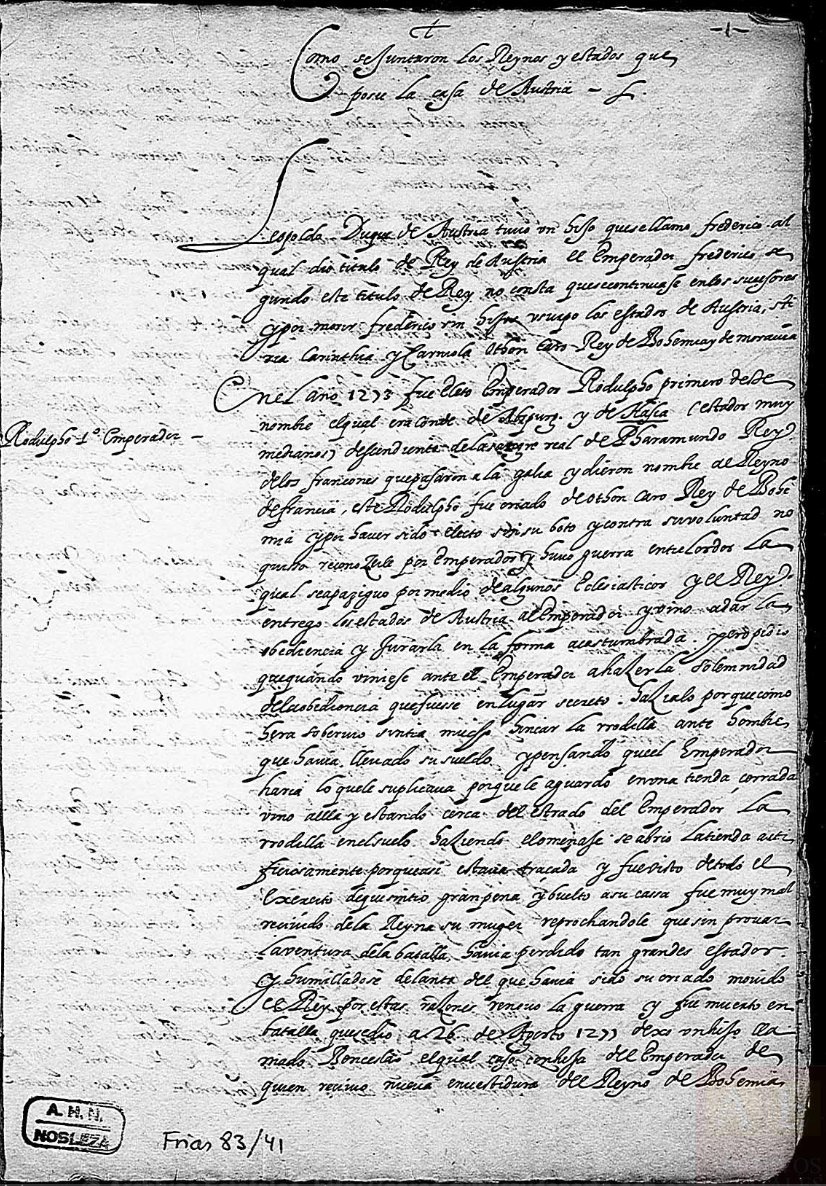 -1-
Como se Juntaron los Reynos y estados que
posee la casa de Austria
Leopoldo Duque de Austria tuvo un hijo que se llamo frederico al
qual dio titulo de Rey de Austria el Emperador frederico se
gundo este titulo de Rey no consta que se continuase en los sucesores
y por morir frederico sin hijos usurpo los estados de Austria, sti
ria Carinthia y Carniola Othon Caro Rey de Bohemia y de moravia
En el año 1273 fue eleto Emperador Rodulpho primero deste
Rodulpho 1º Emperador
nombre el qual era conde de Abspurg y de (estados muy
medianos) descendiente de la sangre real de Pharamundo Rey
de los francones que pasaron a la galia y dieron nombre al Reyno
de francia, este Rodulpho fue criado de othon Caro Rey de Bohe
mia y por haver sido electo sin su boto y contra su voluntad no
quiso reconozerle por Emperador y huvo guerra entre los dos la
qual se apaziguo por medio de algunos Eclesiasticos y el Rey
entrego los estados de Austria al Emperador y vino a dar la
obediencia y Jurarla en la forma acostumbrada y pero pidio
que quando viniese ante el Emperador a hazer la solemnidad
de la obediencia que fuese en lugar secreto. hazialo porque como
hera sobervio sintia mucho hincar la rrodilla ante hombre
que havia llevado su sueldo y pensando que el Emperador
haria lo que le suplicava porque le aguardo en una tienda cerrada
vino alla y estando cerca del estrado del Emperador la
rrodilla en el suelo haziendo el omenaje se abrio la tienda arti
ficiosamente porque asi estava tracada y fue visto de todo el
Exercito de que sintio gran pena y buelto a su cassa fue muy mal
recivido de la Reyna su muger reprochandole que sin provar
la ventura de la batalla havia perdido tan grandes estados
y humilladose delante del que havia sido su criado movido
el Rey por estas razones renovo la guerra y fue muerto en
batalla que se dio a 26 de Agosto 1277 dexo un hijo lla
mado Benceslao el qual caso con hija del Emperador de
quien recivio nueva envestidura del Reyno de Bohemia
A. H. N.
NOBLEZA
Frias 83/41